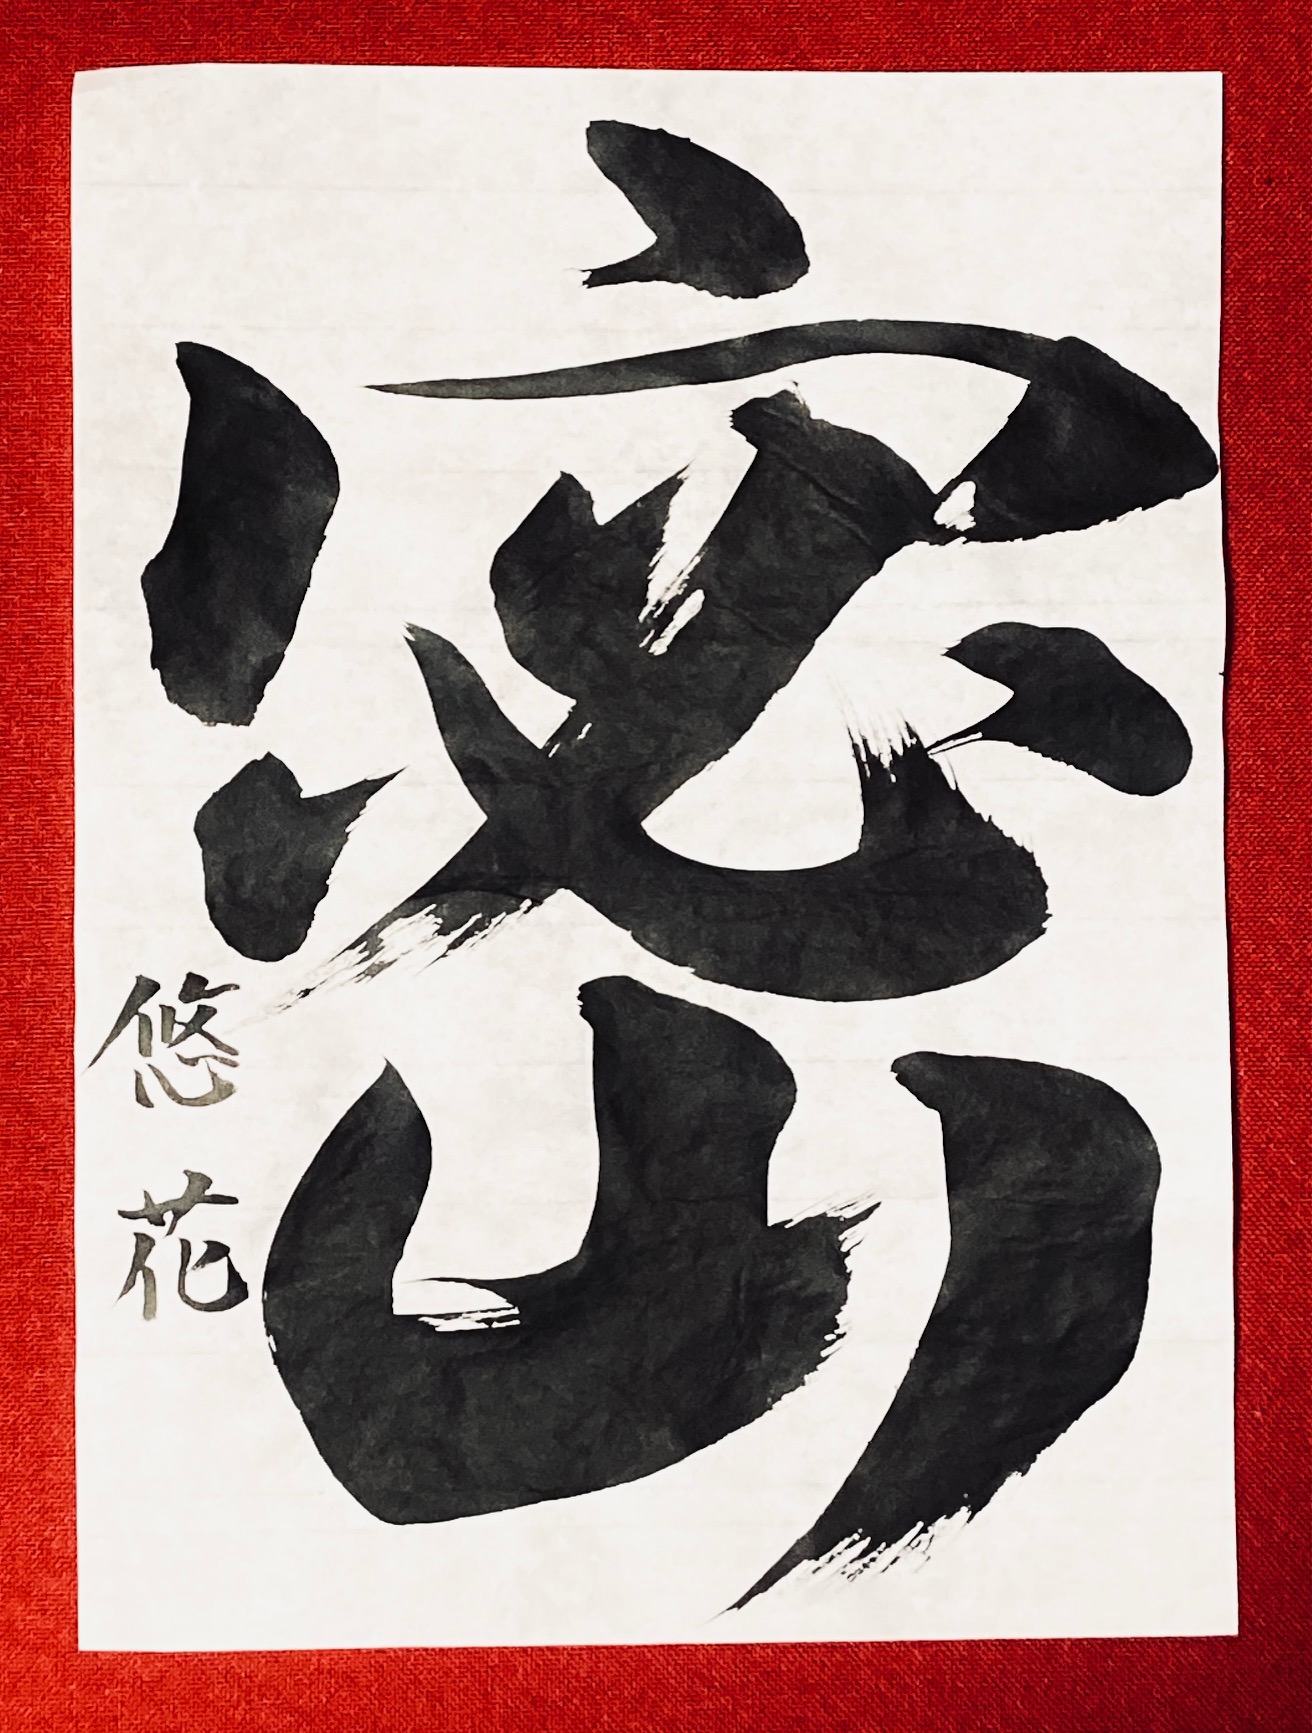 密
悠花